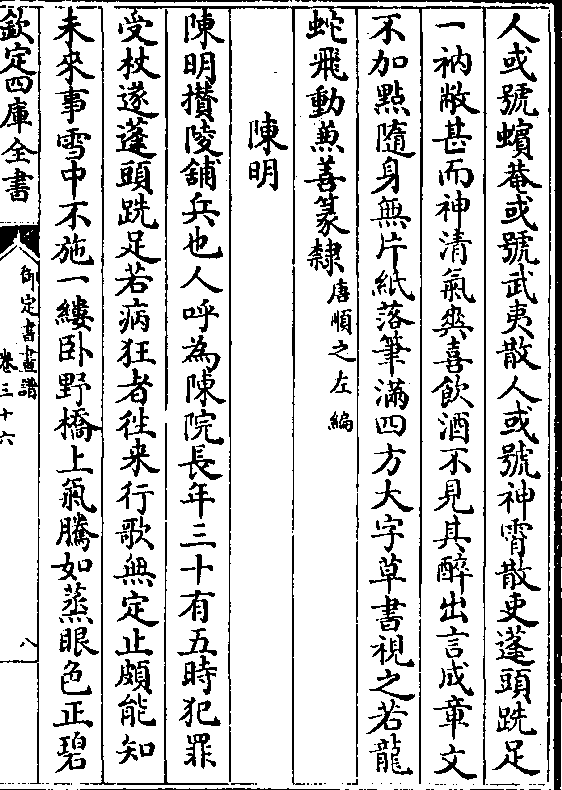 人或號蠙菴或號武夷散人或號神霄散吏蓬頭跣足
一衲敝甚而神清氣爽喜飲酒不見其醉出言成章文
不加點隨身無片紙落筆滿四方大字草書視之若龍
蛇飛動兼善篆隸唐順之左編
陳明
陳明攅陵舖兵也人呼為陳院長年三十有五時犯罪
受杖遂蓬頭跣足若病狂者徃来行歌無定止頗能知
未來事雪中不施一縷卧野橋上氣騰如蒸眼色正碧
欽定四庫全書
御定書畫譜
卷三十六
八